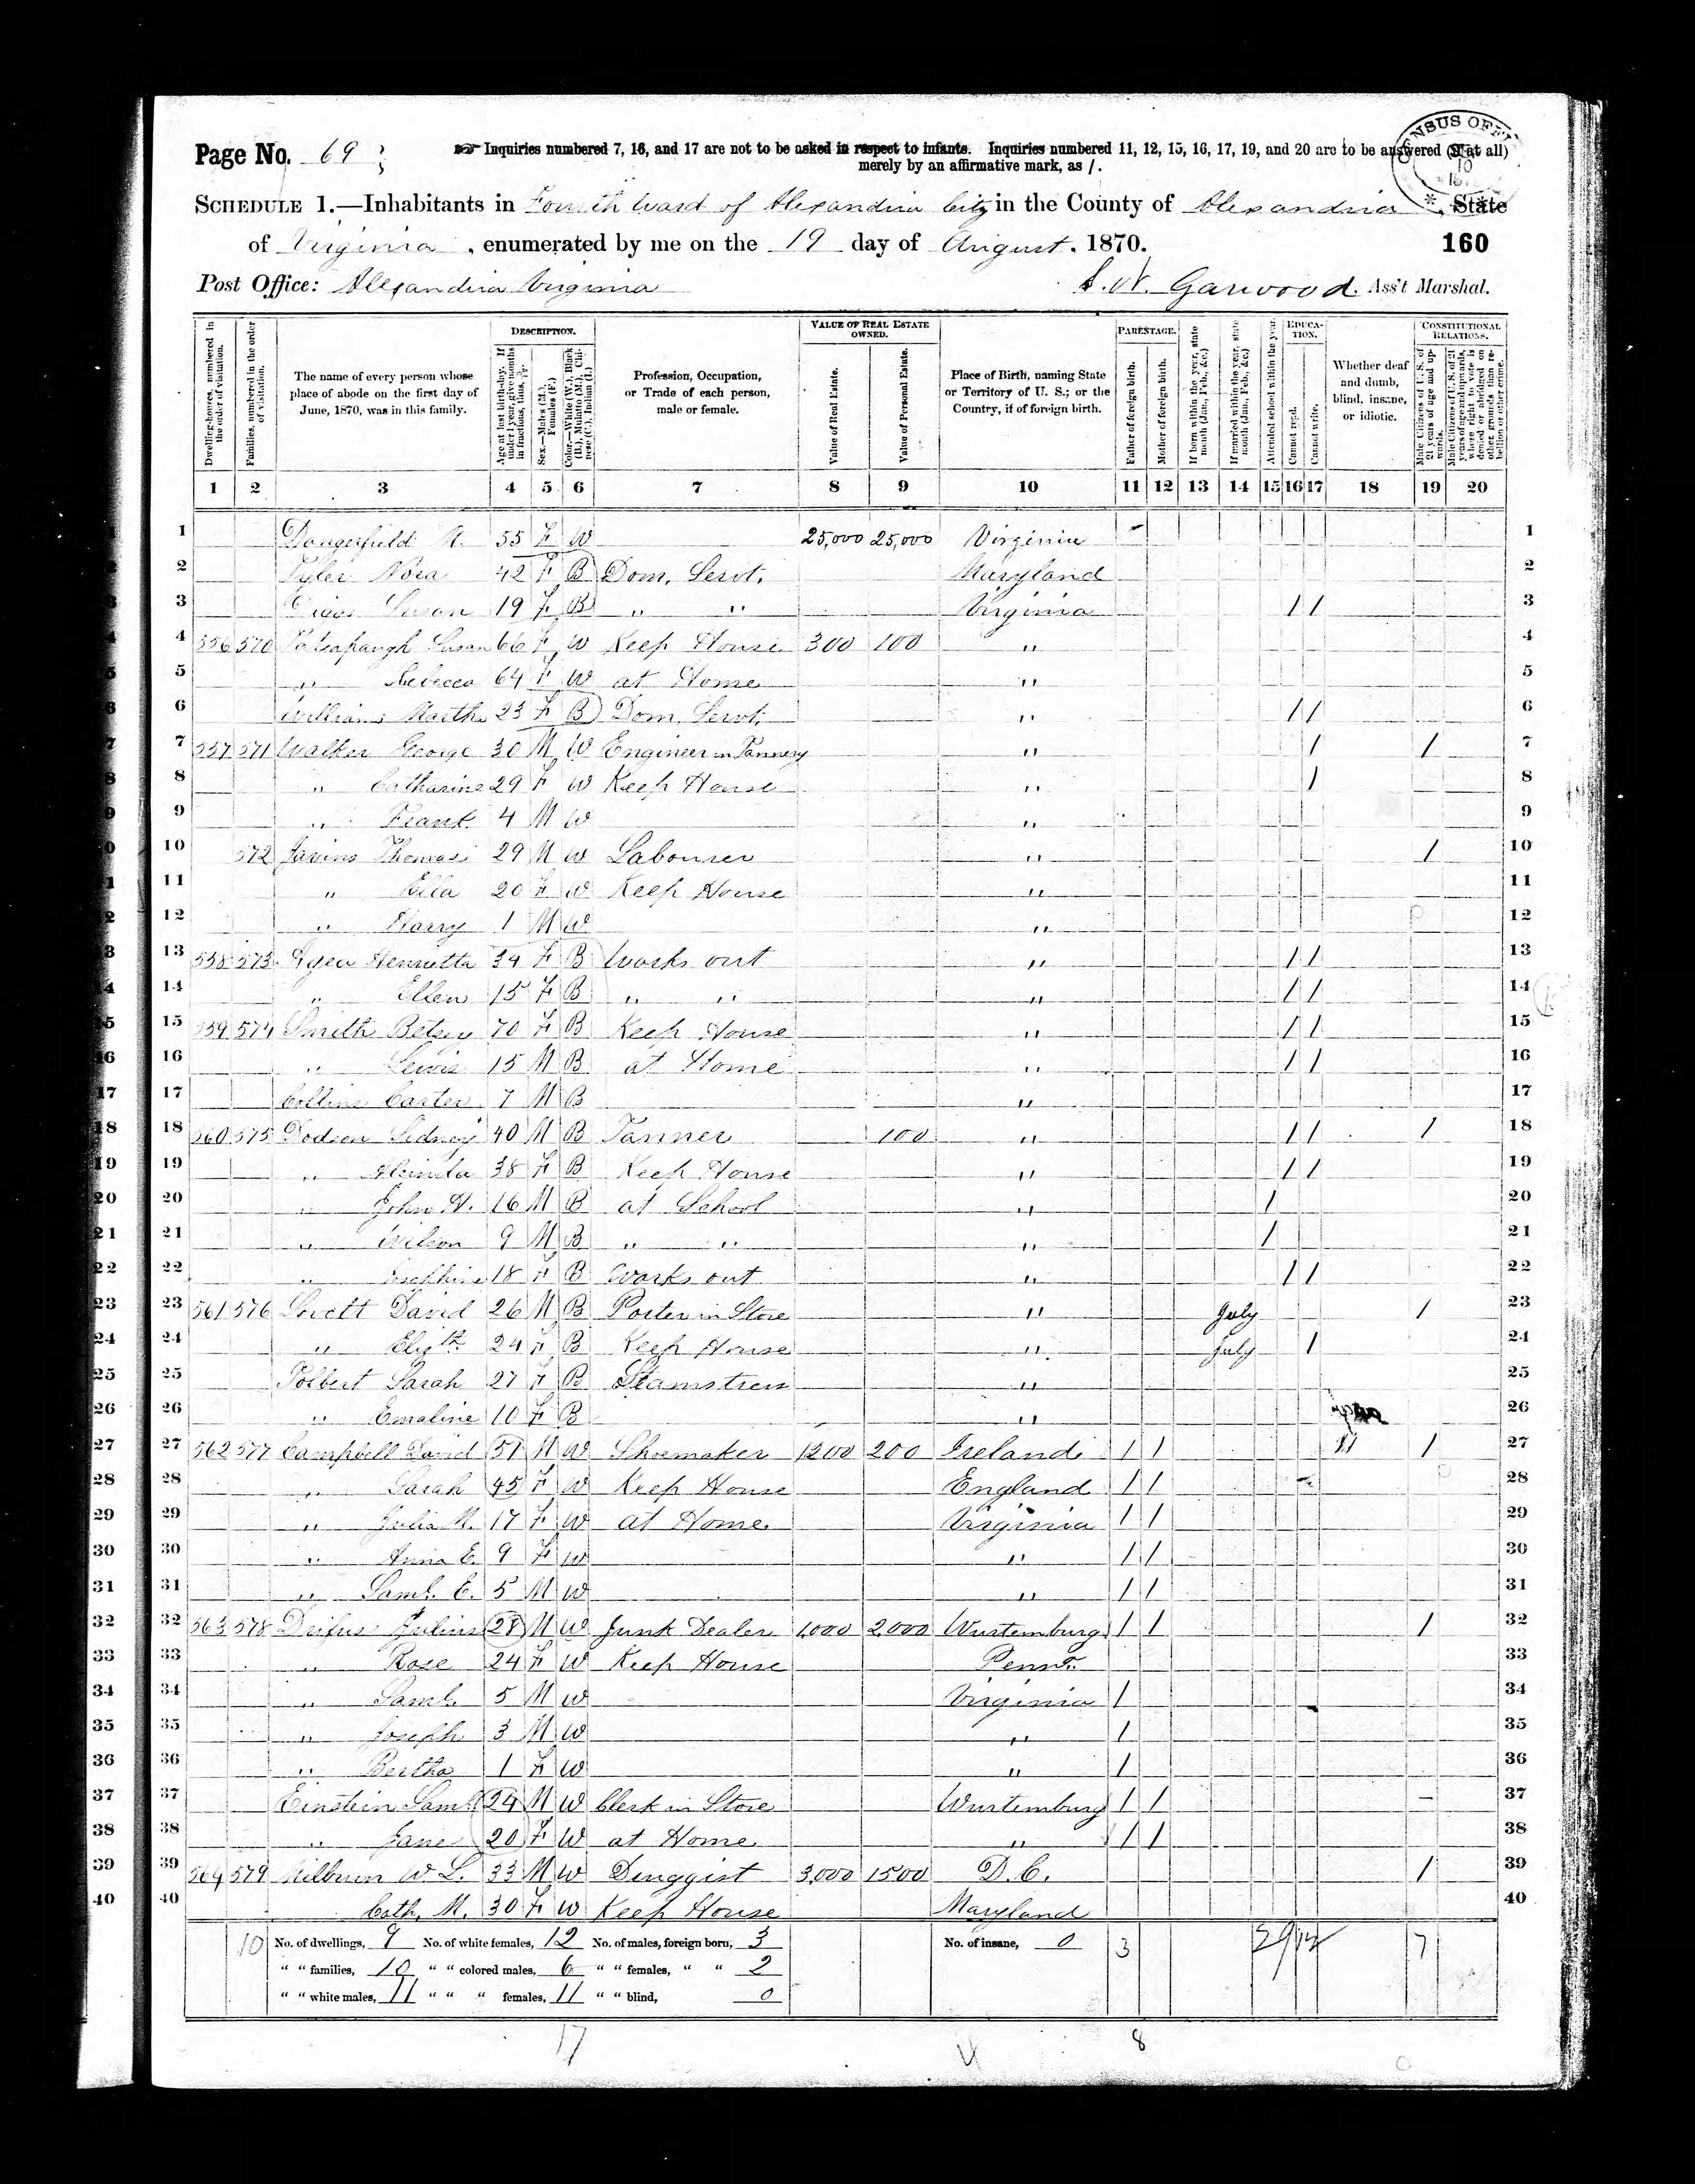 Page No. 69
☞ Inquiries numbered 7, 16, and 17 are not to be asked in respect to infants. Inquiries numbered 11, 12, 15, 16, 17, 19, and 20 are to be answered (if at all)
merely by an affirmative mark, as /.
SCHEDULE 1.—Inhabitants in Fourth Ward of Alexandria City in the County of Alexandria, State
of Virginia, enumerated by me on the 19 day of August, 1870.
160
Post Office: Alexandria Virginia
S. W. Garwood, Ass't Marshal.
Dwelling-houses, numbered in the order of visitation.
Families, numbered in the order of visitation.
The name of every person whose place of abode on the first day of June, 1870, was in this family.
DESCRIPTION.
Age at last birth-day. If under 1 year, give months in fractions, thus,
Sex.—Males (M.), Females (F.)
Color.—White (W.), Black (B.), Mulatto (M.), Chinese (C.), Indian (I.)
Profession, Occupation, or Trade of each person, male or female.
VALUE OF REAL ESTATE OWNED.
Value of Real Estate.
Value of Personal Estate.
Place of Birth, naming State or Territory of U. S.; or the Country, if of foreign birth.
PARENTAGE.
Father of foreign birth.
Mother of foreign birth.
If born within the year, state month (Jan., Feb., &c.)
If married within the year, state month (Jan., Feb., &c.)
Attended school within the year.
EDUCATION.
Cannot read.
Cannot write.
Whether deaf and dumb, blind, insane, or idiotic.
CONSTITUTIONAL RELATIONS.
Male Citizens of U. S. of 21 years of age and upwards.
Male Citizens of U. S. of 21 years of age and upwards, where right to vote is denied or abridged on other grounds than rebellion or other crime.
1 2 3 4 5 6 7 8 9 10 11 12 13 14 15 16 17 18 19 20
1 Dangerfield 55 F W 25,000 25,000 Virginia 1
2 Tyler Nora 42 F B Dom. Servt. Maryland 2
3 Susan 19 F B " " Virginia / / 3
4 556 570 Susan 66 F W Keep House 300 100 " 4
5 " Rebecca 64 F W at Home " 5
6 Williams Martha 23 F B Dom. Servt. " / / 6
7 557 571 Walker George 30 M W Engineer in Tannery " / / 7
8 " Catharine 29 F W Keep House " / 8
9 " Frank 4 M W " 9
10 572 Javins Thomas 29 M W Labourer " / 10
11 " Ella 20 F W Keep House " 11
12 " Harry 1 M W " 12
13 558 573 Henrietta 34 F B Works out " / / 13
14 " Ellen 15 F B " " " / / 14
15 559 574 Smith Betsey 70 F B Keep House " / / 15
16 " Lewis 15 M B at Home " / / 16
17 Collins Carter 7 M B " 17
18 560 575 Dodson Sidney 40 M B Tanner 100 " / / / 18
19 " 38 F B Keep House " / / 19
20 " John H. 16 M B at School " / 20
21 " Wilson 9 M B " " " / 21
22 " Josephine 18 F B Works out " / / 22
23 561 576 Lovett David 26 M B Porter in Store " July / 23
24 " Elizth. 24 F B Keep House " July / 24
25 Tolbert Sarah 27 F B Seamstress " 25
26 " Emaline 10 F B " 26
27 562 577 Campbell David 51 M W Shoemaker 1200 200 Ireland / / / 27
28 " Sarah 45 F W Keep House England / / 28
29 " Julia M. 17 F W at Home Virginia / / 29
30 " Anna E. 9 F W " / / 30
31 " Saml. E. 5 M W " / / 31
32 563 578 Dreifus Julius 28 M W Junk Dealer 1,000 2,000 Wurtemburg / / / 32
33 " Rose 24 F W Keep House Penna. 33
34 " Saml. 5 M W Virginia / 34
35 " Joseph 3 M W " / 35
36 " Bertha 1 F W " / 36
37 Einstein Saml. 24 M W Clerk in Store Wurtemburg / / – 37
38 " Jane 20 F W at Home " / / 38
39 564 579 Milburn W. L. 33 M W Druggist 3,000 1500 D. C. / 39
40 Cath. M. 30 F W Keep House Maryland 40
10 No. of dwellings, 9 No. of white females, 12 No. of males, foreign born, 3 No. of insane, 0 3 7
" " families, 10 " " colored males, 6 " " females, " " 2
" " white males, 11 " " " females, 11 " " blind, 0
17 8